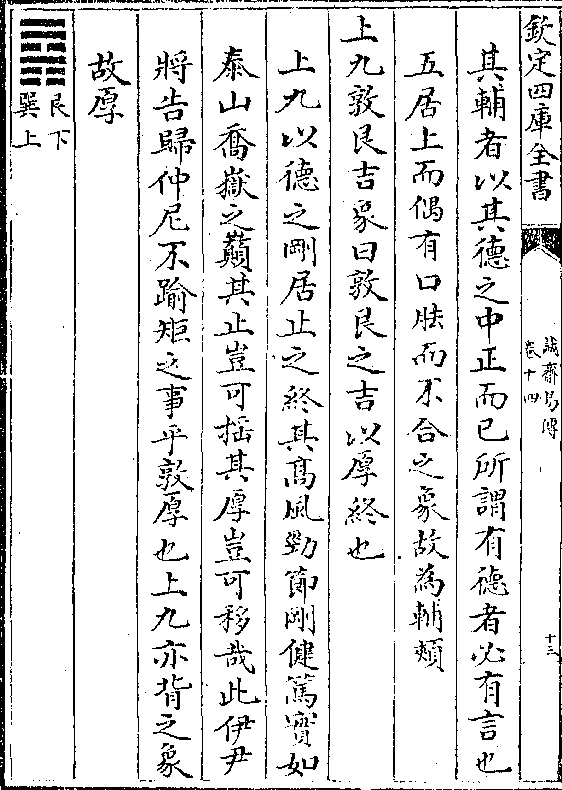 欽定四庫全書
誠齋易傳
卷十四
十三
其輔者以其德之中正而已所謂有德者必有言也
五居上而偶有口呿而不合之象故為輔頰
上九敦艮吉象曰敦艮之吉以厚終也
上九以德之剛居止之終其髙風勁節剛健篤實如
泰山喬嶽之巔其止豈可搖其厚豈可移哉此伊尹
將告歸仲尼不踰矩之事乎敦厚也上九亦背之象
故厚
艮下
巽上